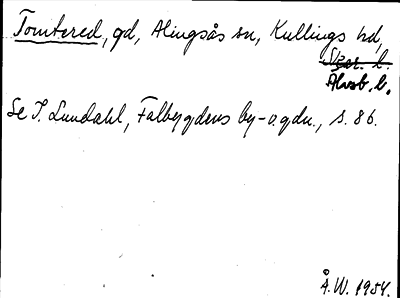 Tombered, gd, Alingsås sn, Kullings hd,
Skar. l.
Älvsb. l.
Se I. Lundahl, Falbygdens by- o. gdn., s. 86.
Å.W. 1954.